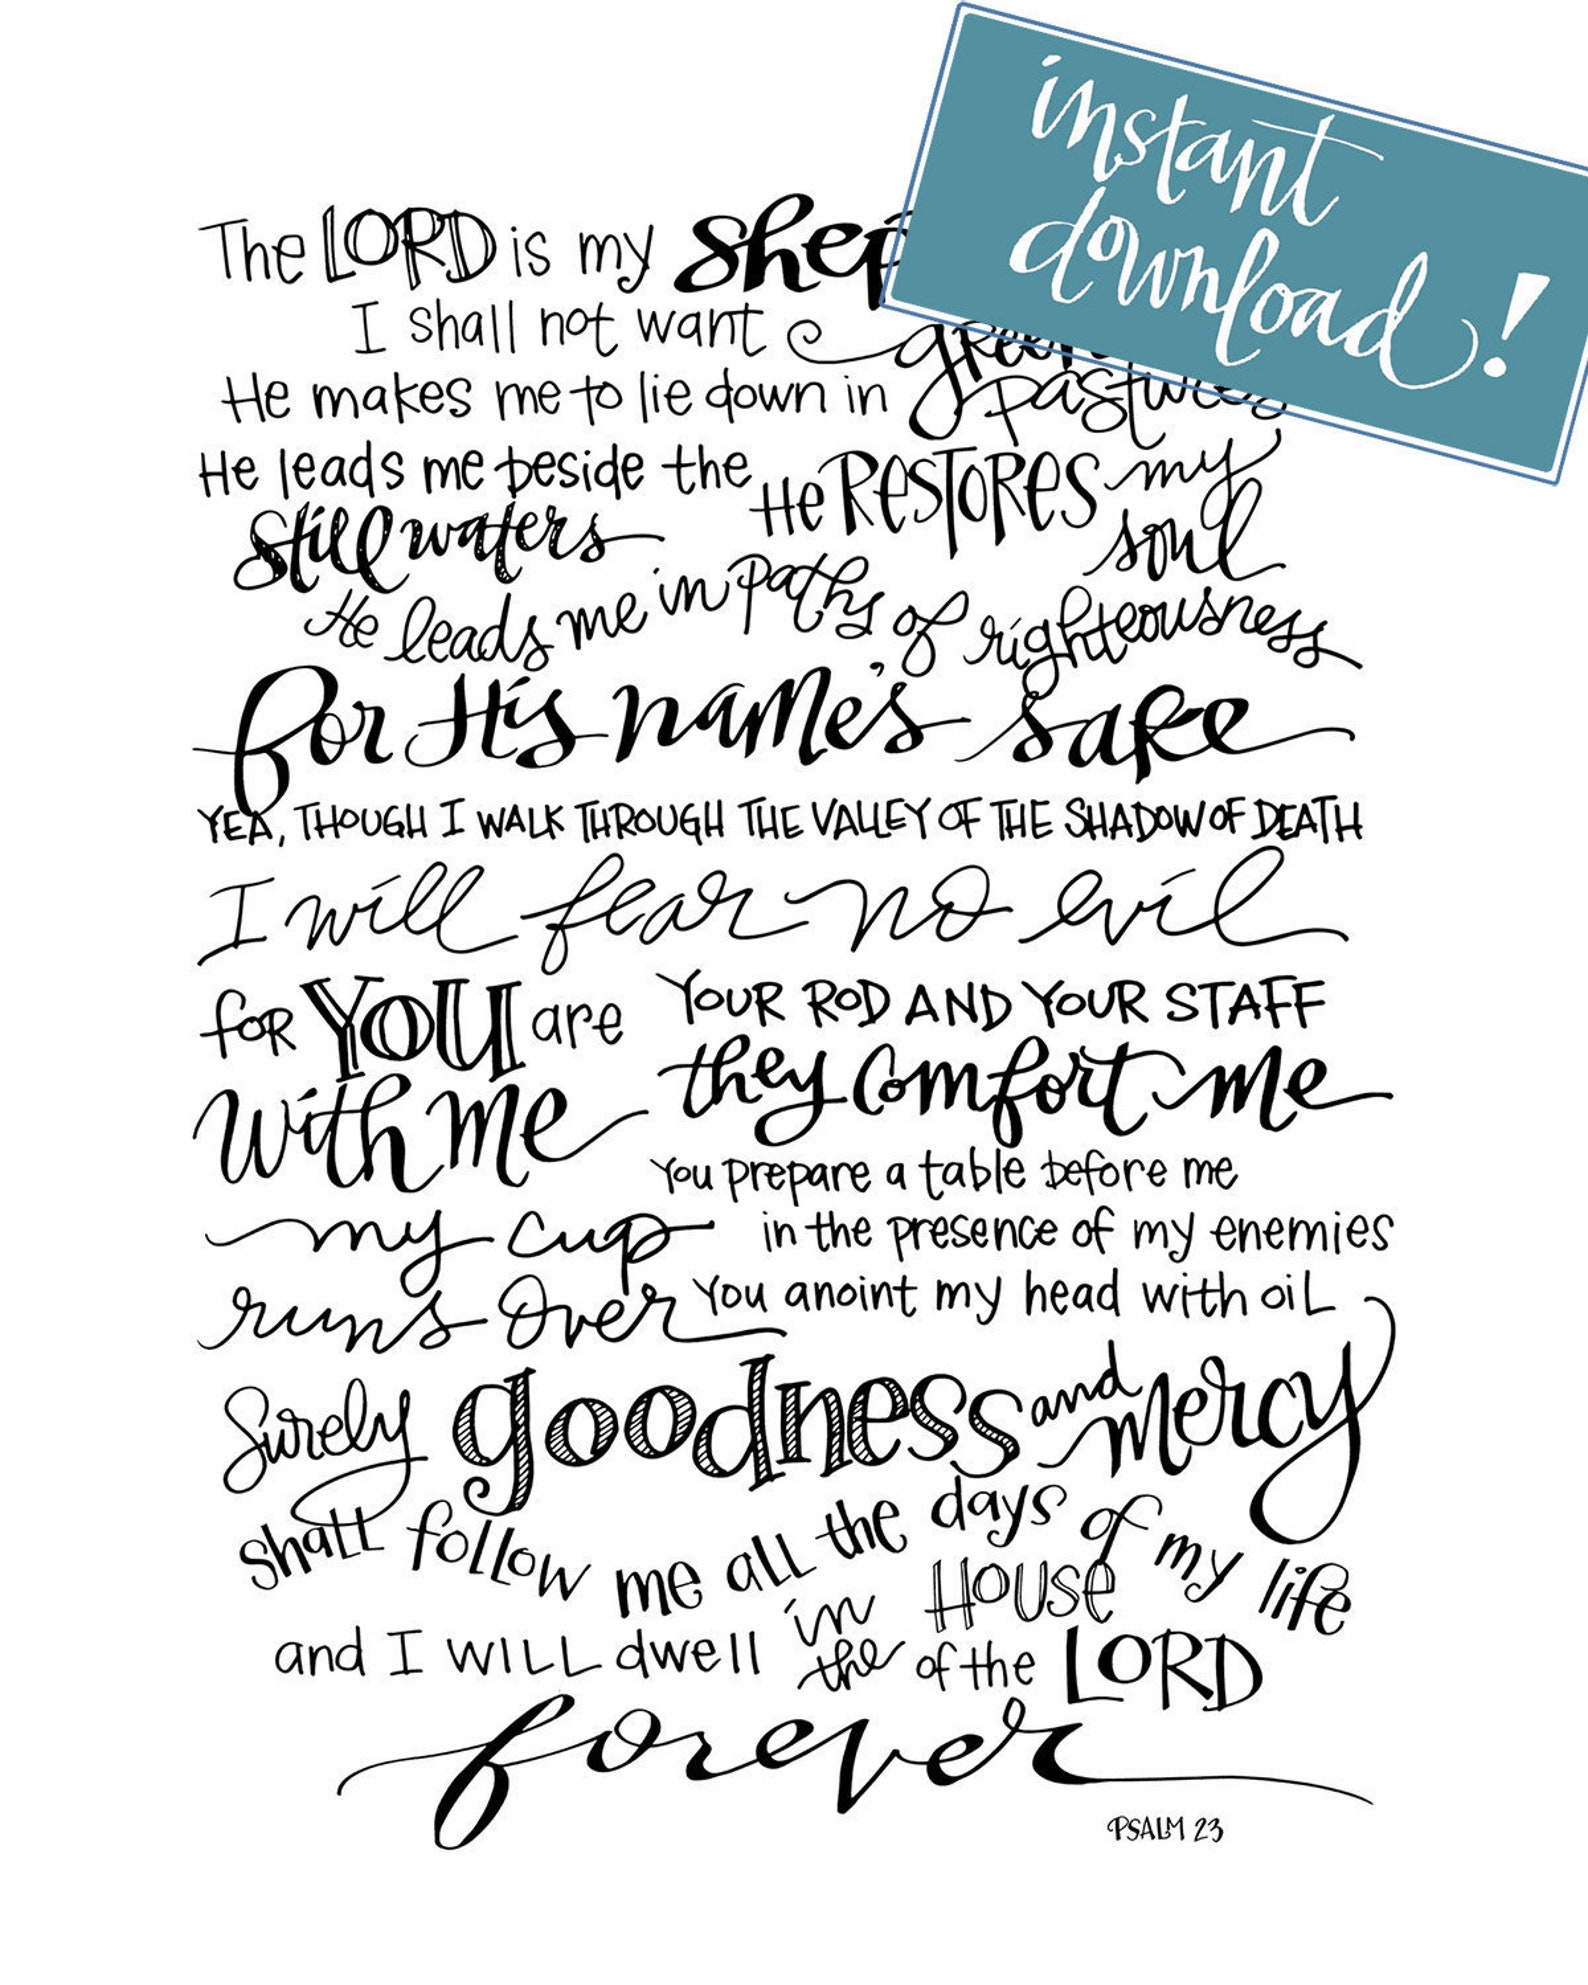 instant
download!
The LORD is my Shep
I shall not want
He makes me to lie down in green pastures
He leads me beside the
still waters
He RESTORES my
soul
He leads me in paths of righteousness
for His name's sake
YEA, THOUGH I WALK THROUGH THE VALLEY OF THE SHADOW OF DEATH
I will fear no evil
for YOU are
with me
YOUR ROD AND YOUR STAFF
they comfort me
You prepare a table before me
in the presence of my enemies
You anoint my head with oil
my cup
runs over
Surely goodness and mercy
shall follow me all the days of my life
and I WILL dwell in the HOUSE of the LORD
forever
PSALM 23